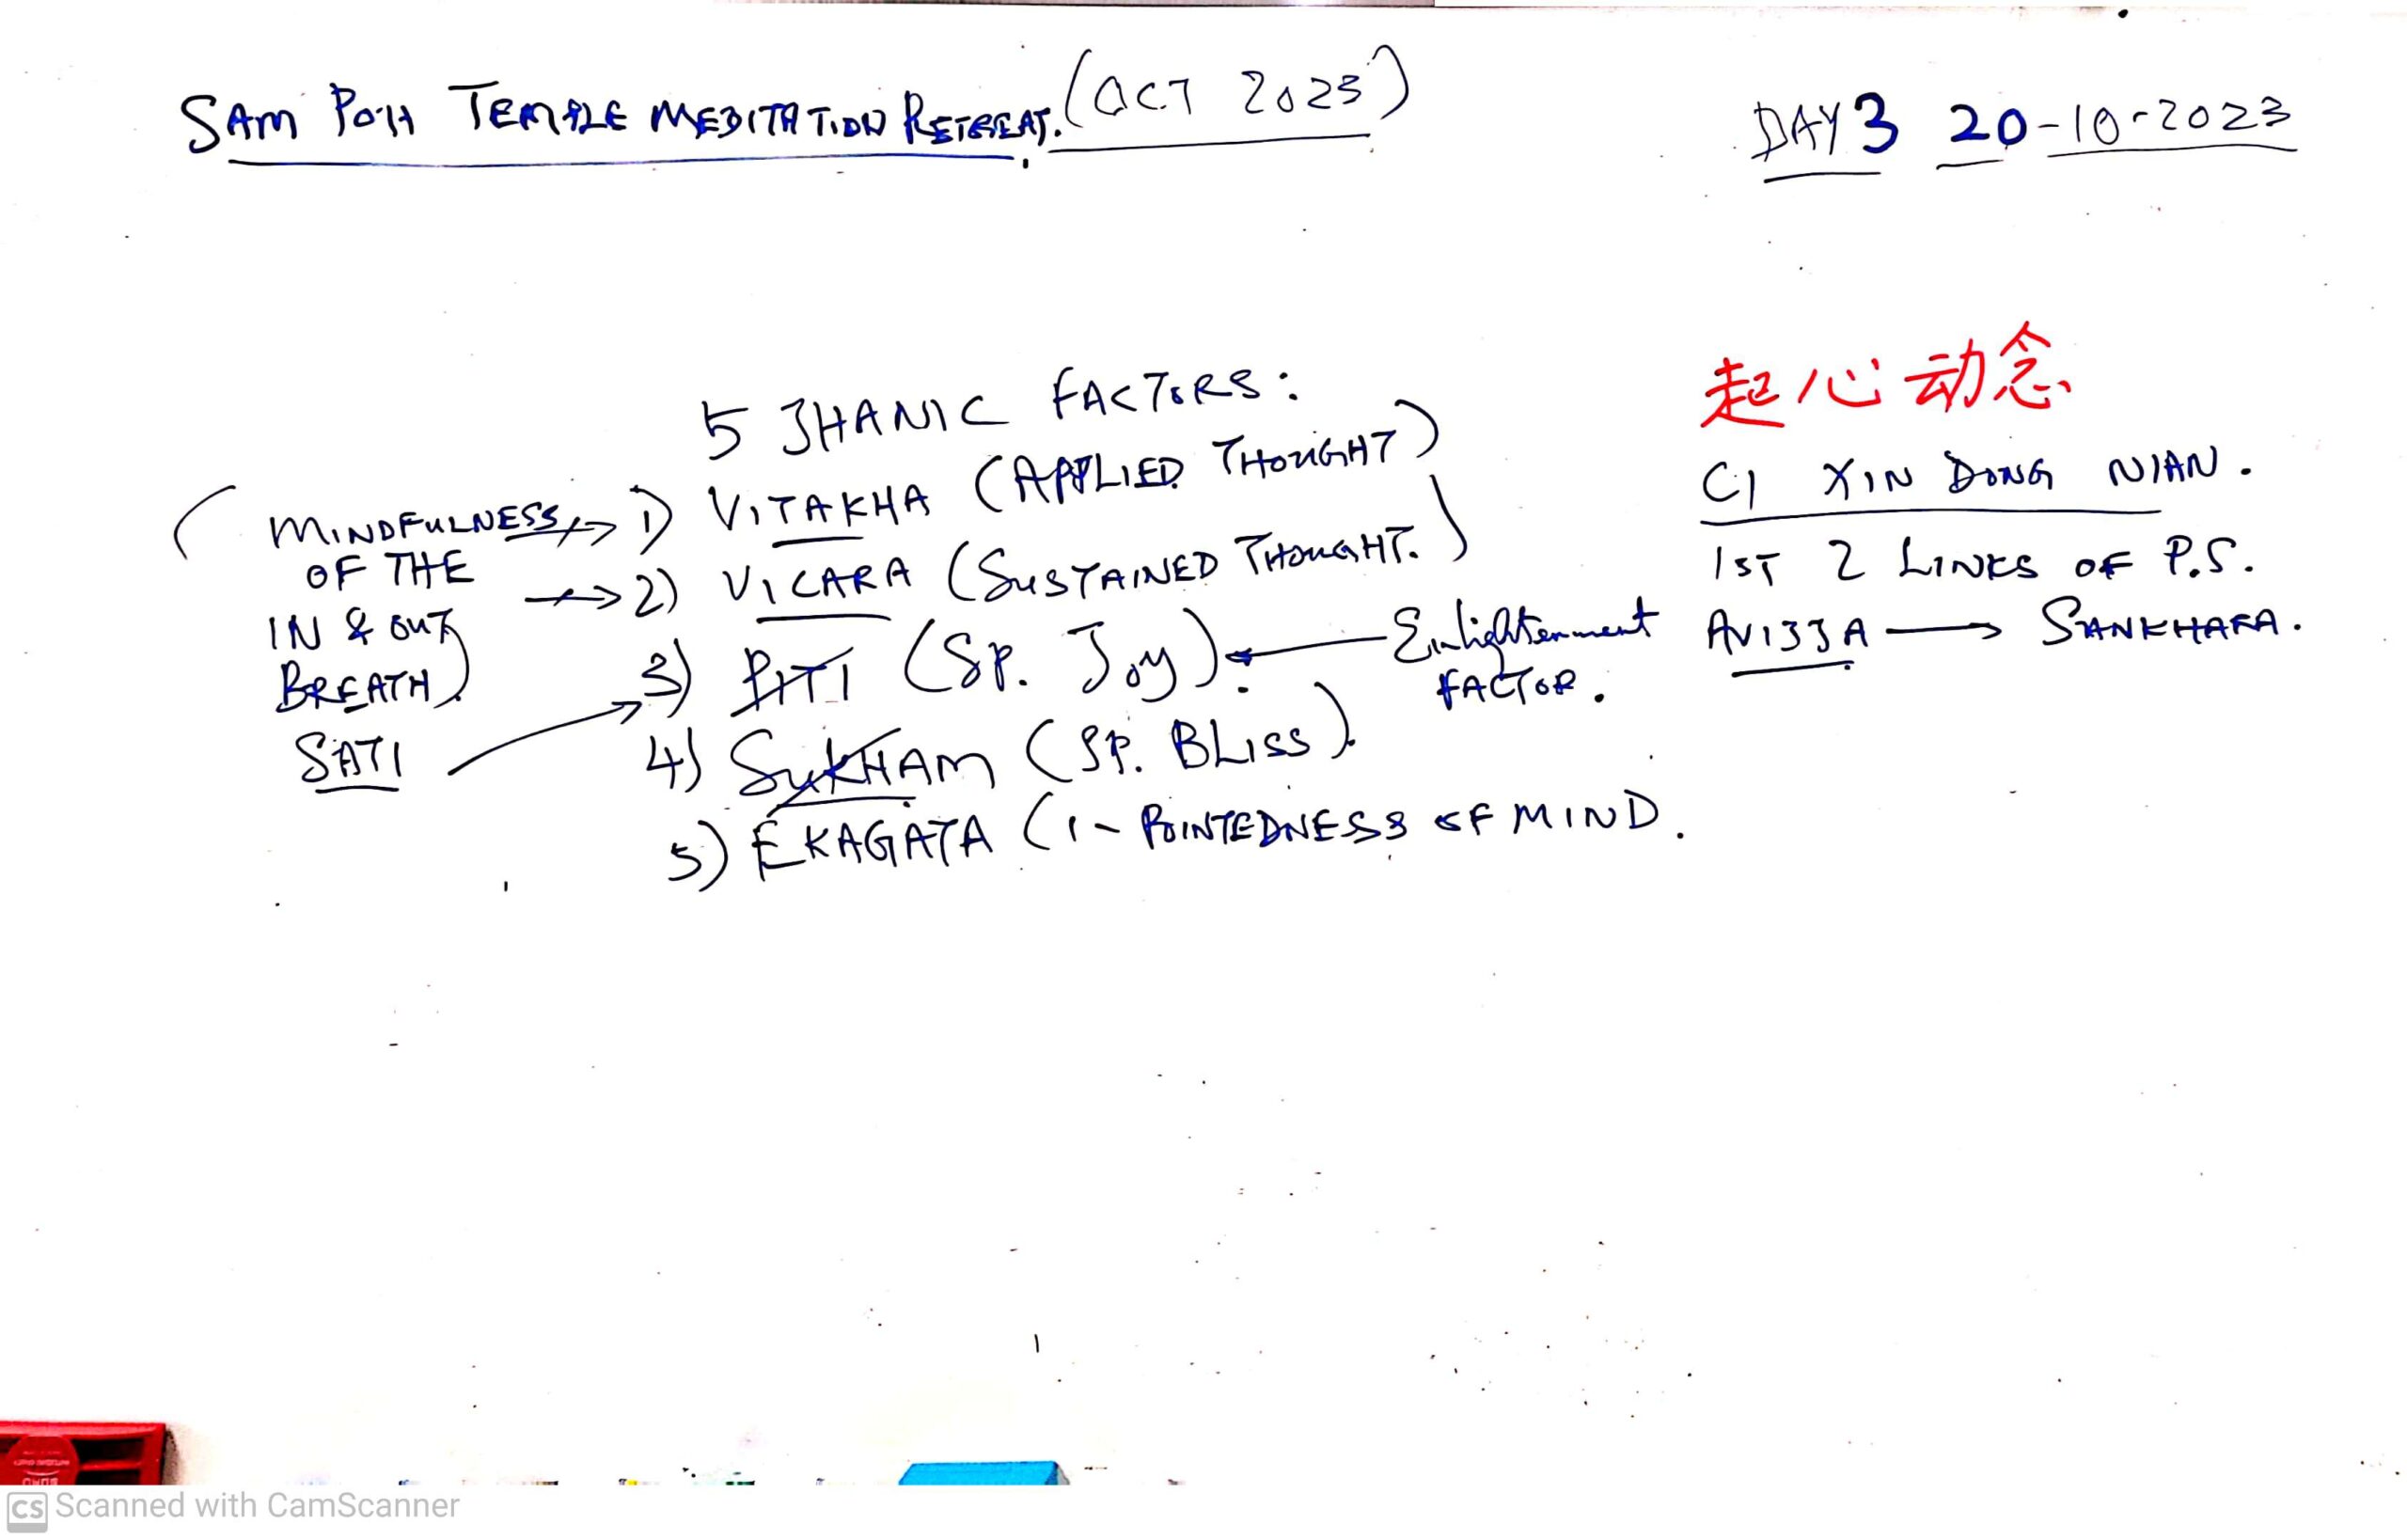 SAM POH TEMPLE MEDITATION RETREAT. (OCT 2023)
DAY 3 20-10-2023
5 JHANIC FACTORS:
(MINDFULNESS → 1) VITAKHA (APPLIED THOUGHT)
OF THE → 2) VICARA (SUSTAINED THOUGHT.)
IN & OUT
BREATH)
SATI → 3) PITI (SP. JOY) ← Enlightenment
FACTOR.
4) SUKHAM (SP. BLISS).
5) EKAGATA (1-POINTEDNESS OF MIND.
起心动念
CI XIN DONG NIAN.
1ST 2 LINKS OF P.S.
AVIJJA → SANKHARA.
CS Scanned with CamScanner